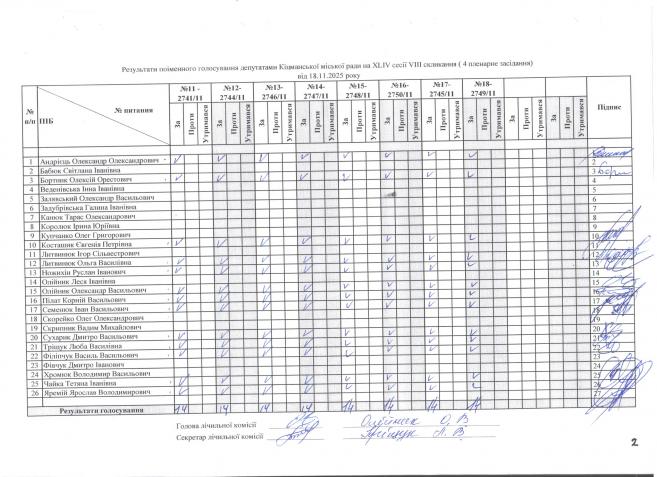 Результати поіменного голосування депутатами Кіцманської міської ради на XLIV сесії VIII скликання ( 4 пленарне засідання)
від 18.11.2025 року
№ п/п ПІБ № питання №11 - 2741/11 №12- 2744/11 №13- 2746/11 №14- 2747/11 №15- 2748/11 №16- 2750/11 №17- 2745/11 №18- 2749/11 Підпис
За Проти Утримався За Проти Утримався За Проти Утримався За Проти Утримався За Проти Утримався За Проти Утримався За Проти Утримався За Проти Утримався За Проти Утримався За Проти Утримався
1 Андрієць Олександр Олександрович ✓ ✓ ✓ ✓ ✓ ✓ ✓ ✓
2 Бабюк Світлана Іванівна 2
3 Бортник Олексій Орестович ✓ ✓ ✓ ✓ ✓ ✓ ✓ ✓ 3
4 Веденівська Інна Іванівна 4
5 Залявський Олександр Васильович 5
6 Задубрівська Галина Іванівна 6
7 Канюк Тарас Олександрович 7
8 Королюк Ірина Юріївна 8
9 Купчанко Олег Григорович 9
10 Косташик Євгенія Петрівна ✓ ✓ ✓ ✓ ✓ ✓ ✓ ✓ 10
11 Литвинюк Ігор Сільвестрович 11
12 Литвинюк Ольга Василівна ✓ ✓ ✓ ✓ ✓ ✓ ✓ ✓ 12
13 Ножихін Руслан Іванович ✓ ✓ ✓ ✓ ✓ ✓ ✓ ✓ 13
14 Олійник Леся Іванівна 14
15 Олійник Олександр Васильович ✓ ✓ ✓ ✓ ✓ ✓ ✓ ✓ 15
16 Пілат Корній Васильович ✓ ✓ ✓ ✓ ✓ ✓ ✓ ✓ 16
17 Семенюк Іван Васильович ✓ ✓ ✓ ✓ ✓ ✓ ✓ ✓ 17
18 Скорейко Олег Олександрович 18
19 Скрипник Вадим Михайлович 19
20 Сухарик Дмитро Васильович ✓ ✓ ✓ ✓ ✓ ✓ ✓ ✓ 20
21 Тріщук Люба Василівна ✓ ✓ ✓ ✓ ✓ ✓ ✓ ✓ 21
22 Філіпчук Василь Васильович ✓ ✓ ✓ ✓ ✓ ✓ ✓ ✓ 22
23 Фівчук Дмитро Іванович 23
24 Хромюк Володимир Васильович 24
25 Чайка Тетяна Іванівна ✓ ✓ ✓ ✓ ✓ ✓ ✓ ✓ 25
26 Яремій Ярослав Володимирович ✓ ✓ ✓ ✓ ✓ ✓ ✓ ✓ 26
27
Результати голосування 14 14 14 14 14 14 14 14
Голова лічильної комісії О. В
Секретар лічильної комісії Л. В
2